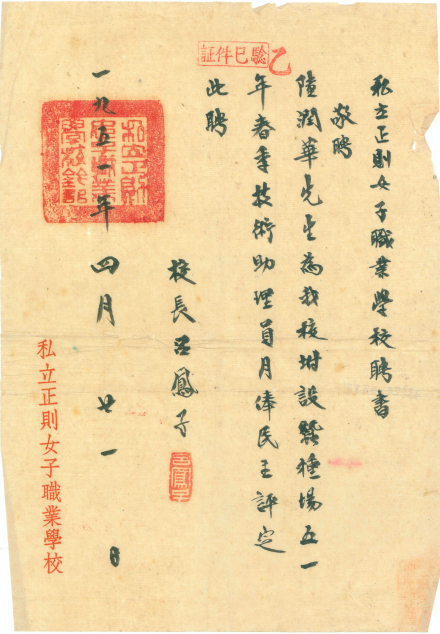 私立正則女子職業學校聘書
敬聘
陸潤華先生為我校坿設蠶種場五一
年春季技術助理員月俸民主評定
此聘
校長呂鳳子
呂鳳子
一九五一年四月廿一日
私立正則女子職業學校
乙
證件已驗